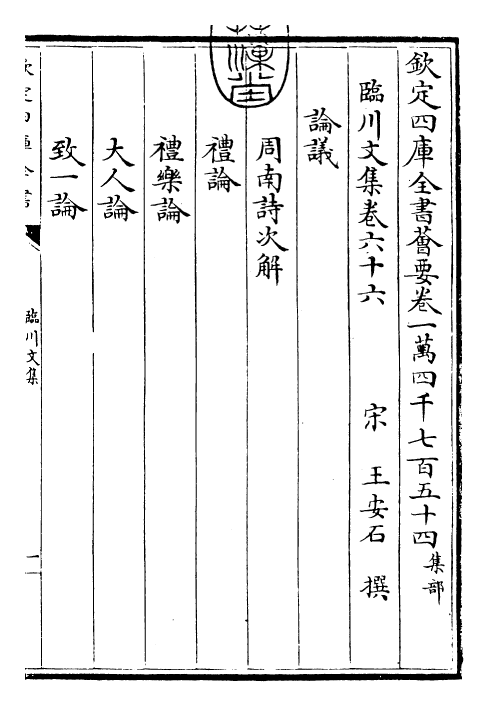 欽定四庫全書薈要卷一萬四千七百五十四 集部
臨川文集卷六十六 宋 王安石 撰
論議
周南詩次解
禮論
禮樂論
大人論
致一論
欽定四庫全書
臨川文集
一